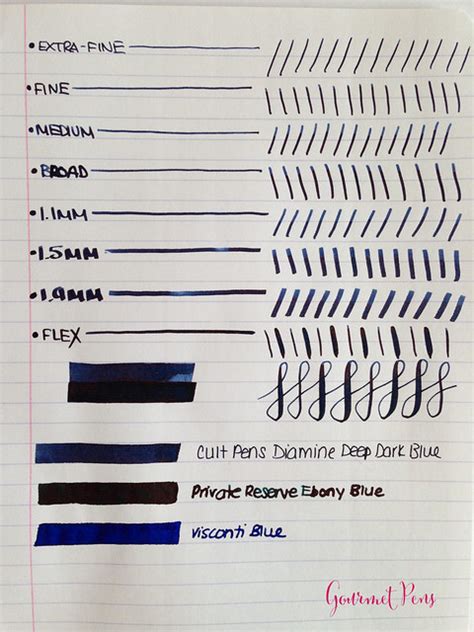 • EXTRA-FINE
• FINE
• MEDIUM
• BROAD
• 1.1MM
• 1.5MM
• 1.9MM
• FLEX
Cult Pens Diamine Deep Dark Blue
Private Reserve Ebony Blue
Visconti Blue
Gourmet Pens